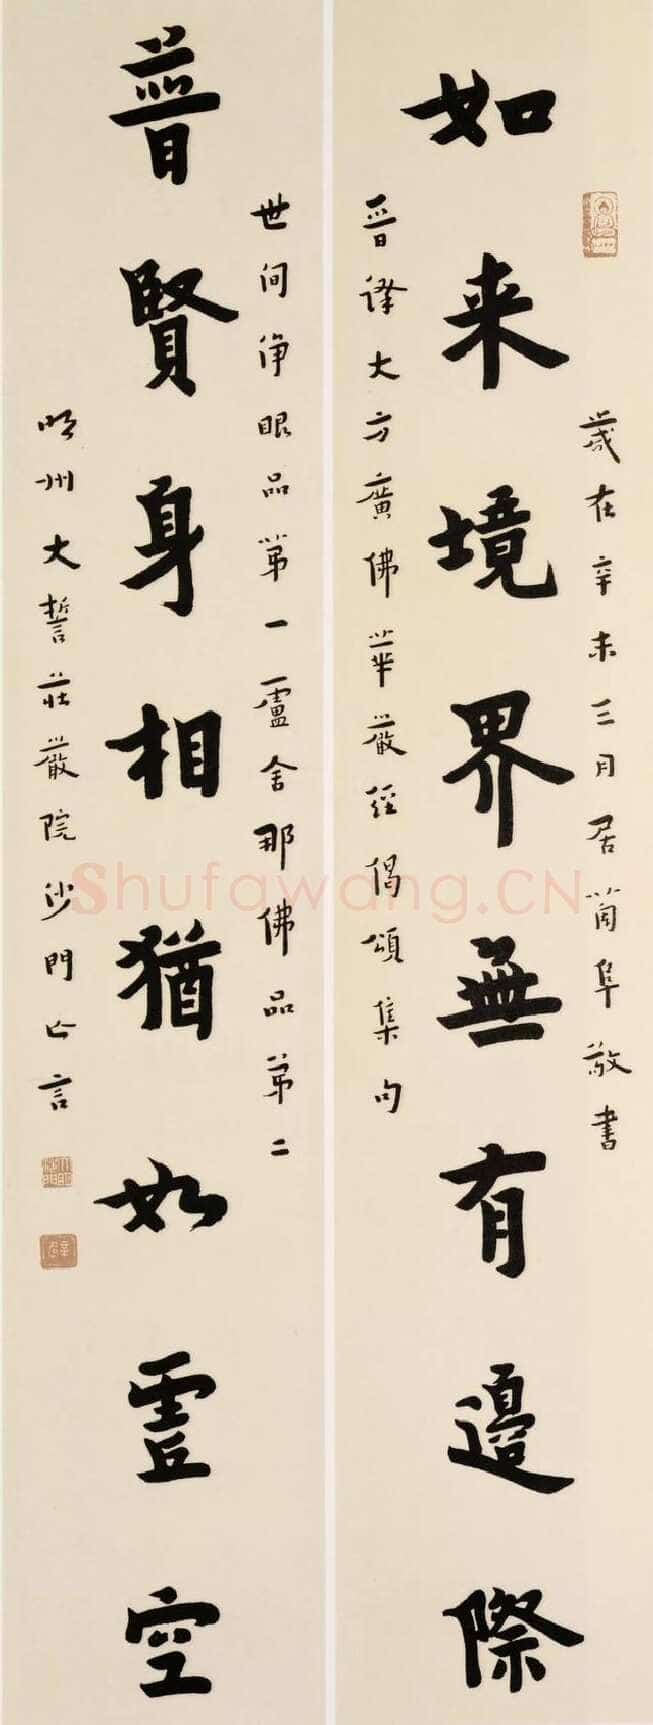 歲在辛未三月居蘭阜敬書
如来境界無有邊際
晉譯大方廣佛華嚴經偈頌集句
世间淨眼品第一盧舍那佛品第二
普賢身相猶如虛空
明州大誓莊嚴院沙門亡言
Shufawang.CN